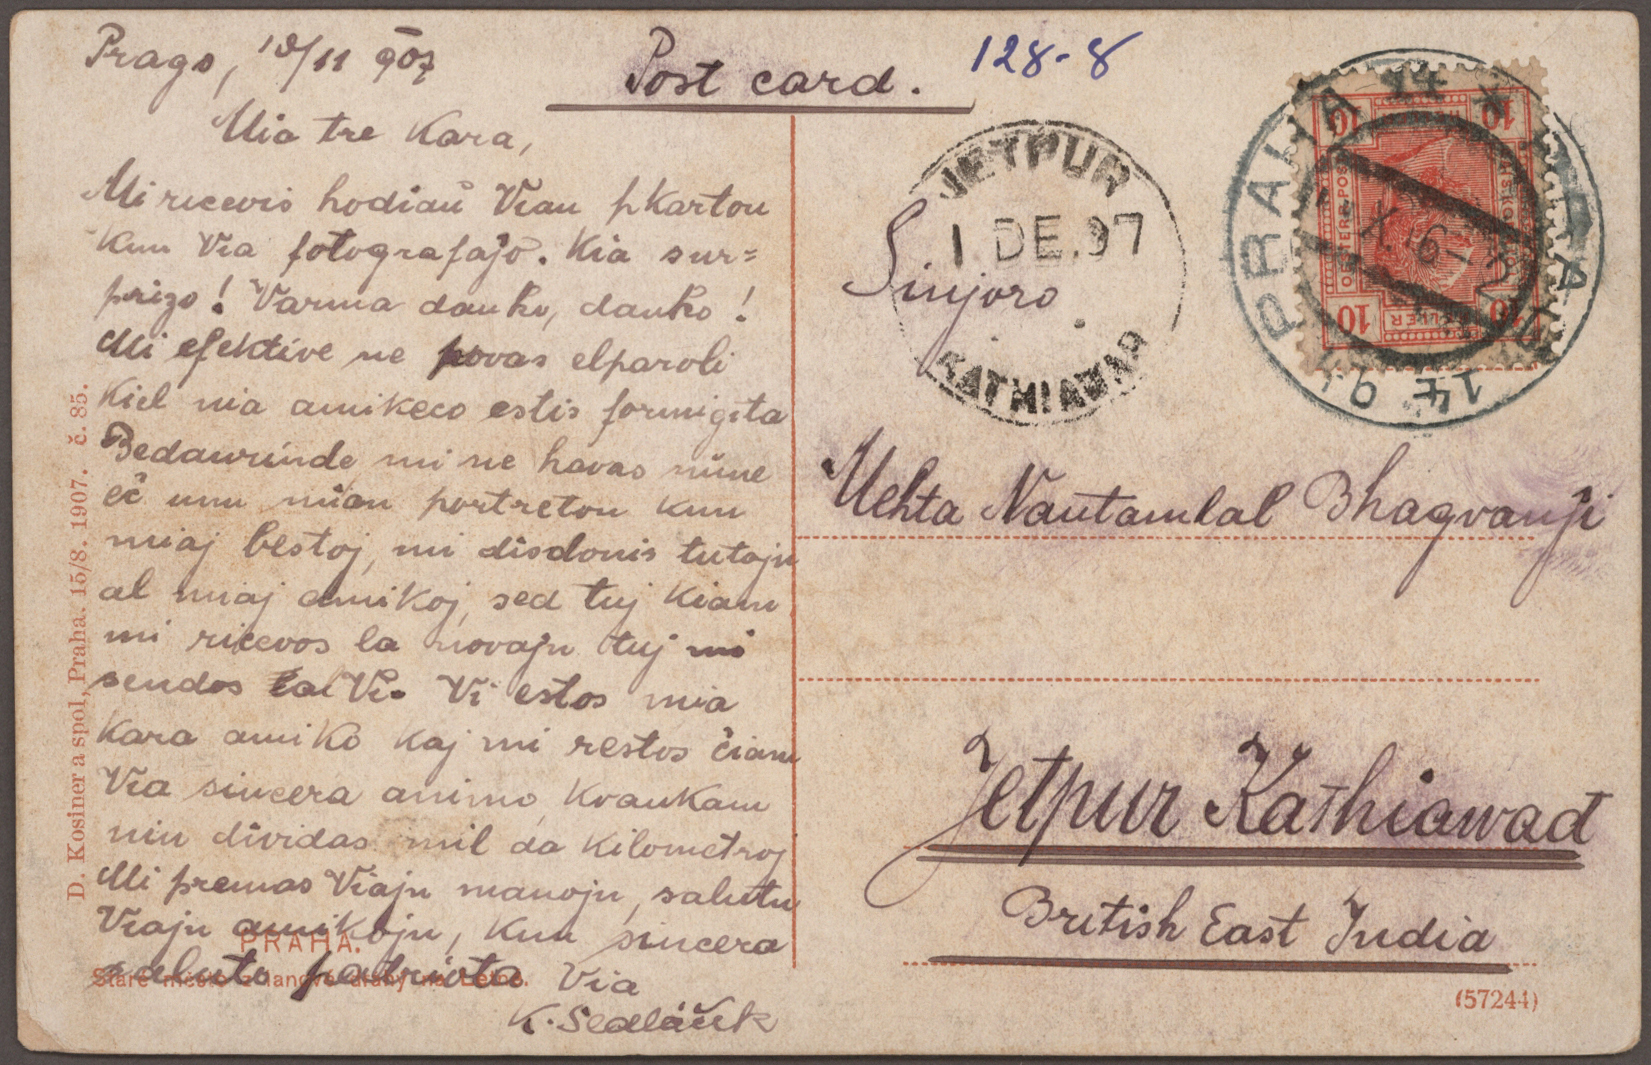 Prago, 10/11 907
Post card.
128-8
Mia tre Kara,
Mi ricevis hodiaŭ Vian pkarton
Kun Via fotografaĵo. Kia sur=
prizo! Varma danko, danko!
Mi efektive ne povas elparoli
Kiel nia amikeco estis formigita
Bedaurinde mi ne havas nune
eĉ unu mian portreton kun
miaj bestoj, mi disdonis tutajn
al miaj amikoj, sed tuj Kiam
mi ricevos la novajn tuj mi
sendos al Vi. Vi estos mia
Kara amiko kaj mi restos ĉiam
Via sincera animo, kvankam
nin dividas mil da kilometroj
Mi premas Viajn manojn, salutu
Viajn amikojn, Kun sincera
saluto patriota Via
K. Sedláček
PRAHA.
Staré město z
D. Kosiner a spol., Praha. 15/8. 1907. č. 85.
JETPUR
1 DE.07
KATHIAWAR
PRAHA
10 10
10 10
Sinjoro
Mehta Nautamlal Bhagvanji
Jetpur Kathiawad
British East India
(57244)